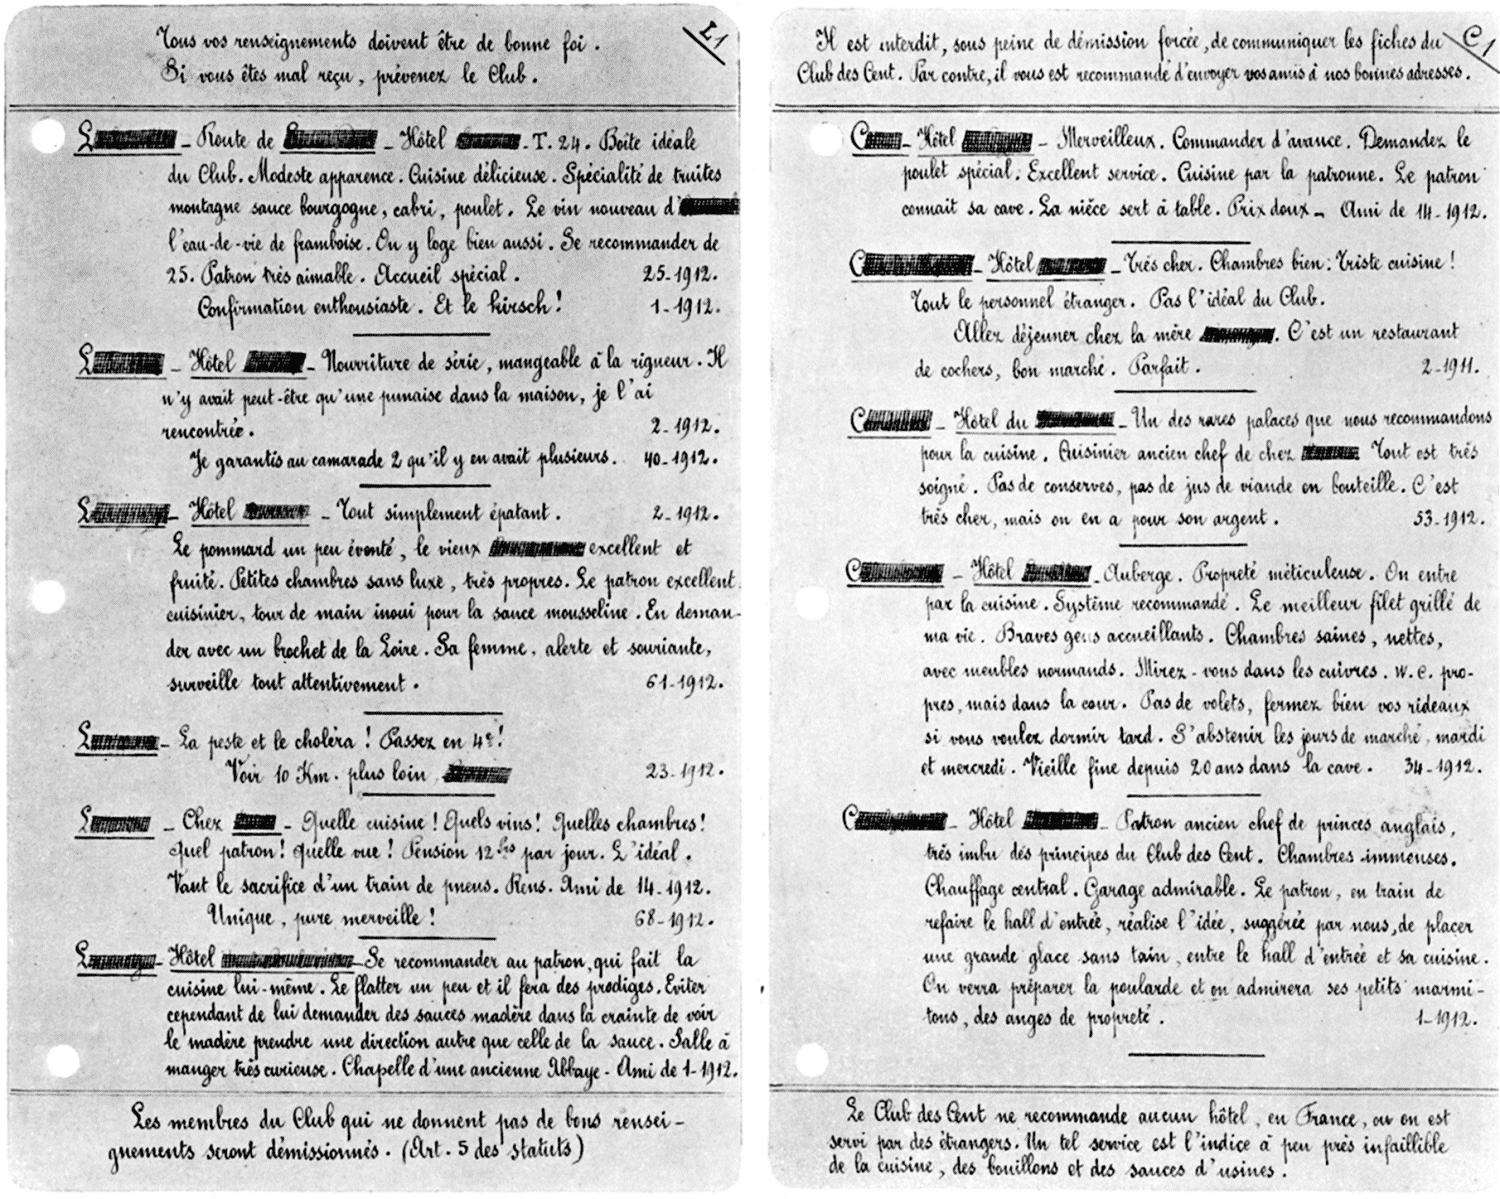 Tous vos renseignements doivent être de bonne foi.
Si vous êtes mal reçu, prévenez le Club.
L1
L - Route de - Hôtel - T. 24. Boîte idéale
du Club. Modeste apparence. Cuisine délicieuse. Spécialité de truites
montagne sauce bourgogne, cabri, poulet. Le vin nouveau d'
l'eau-de-vie de framboise. On y loge bien aussi. Se recommander de
25. Patron très aimable. Accueil spécial. 25-1912.
Confirmation enthousiaste. Et le kirsch! 1-1912.
L - Hôtel - Nourriture de série, mangeable à la rigueur. Il
n'y avait peut-être qu'une punaise dans la maison, je l'ai
rencontrée. 2-1912.
Je garantis au camarade 2 qu'il y en avait plusieurs. 40-1912.
L - Hôtel - Tout simplement épatant. 2-1912.
Le pommard un peu éventé, le vieux excellent et
fruité. Petites chambres sans luxe, très propres. Le patron excellent
cuisinier, tour de main inoui pour la sauce mousseline. En deman-
der avec un brochet de la Loire. Sa femme, alerte et souriante,
surveille tout attentivement. 61-1912.
L - La peste et le choléra! Passez en 4e!
Voir 10 Km. plus loin 23-1912.
L - Chez - Quelle cuisine! Quels vins! Quelles chambres!
Quel patron! Quelle vue! Pension 12 frs par jour. L'idéal.
Vaut le sacrifice d'un train de pneus. Rens. Ami de 14-1912.
Unique, pure merveille! 68-1912.
L - Hôtel - Se recommander au patron, qui fait la
cuisine lui-même. Le flatter un peu et il fera des prodiges. Eviter
cependant de lui demander des sauces madère dans la crainte de voir
le madère prendre une direction autre que celle de la sauce. Salle à
manger très curieuse. Chapelle d'une ancienne Abbaye - Ami de 1-1912.
Les membres du Club qui ne donnent pas de bons rensei-
gnements seront démissionnés. (Art. 5 des statuts)
Il est interdit, sous peine de démission forcée, de communiquer les fiches du
Club des Cent. Par contre, il vous est recommandé d'envoyer vos amis à nos bonnes adresses.
C1
C - Hôtel - Merveilleux. Commander d'avance. Demandez le
poulet spécial. Excellent service. Cuisine par la patronne. Le patron
connait sa cave. La nièce sert à table. Prix doux - Ami de 14-1912.
C - Hôtel - Très cher. Chambres bien: Triste cuisine!
Tout le personnel étranger. Pas l'idéal du Club.
Allez déjeuner chez la mère . C'est un restaurant
de cochers, bon marché. Parfait. 2-1911.
C - Hôtel du - Un des rares palaces que nous recommandons
pour la cuisine. Cuisinier ancien chef de chez Tout est très
soigné. Pas de conserves, pas de jus de viande en bouteille. C'est
très cher, mais on en a pour son argent. 53-1912.
C - Hôtel - Auberge. Propreté méticuleuse. On entre
par la cuisine. Système recommandé. Le meilleur filet grillé de
ma vie. Braves gens accueillants. Chambres saines, nettes,
avec meubles normands. Mirez-vous dans les cuivres. W.C. pro-
pres, mais dans la cour. Pas de volets, fermez bien vos rideaux
si vous voulez dormir tard. S'abstenir les jours de marché, mardi
et mercredi. Vieille fine depuis 20 ans dans la cave. 34-1912.
C - Hôtel - Patron ancien chef de princes anglais,
très imbu des principes du Club des Cent. Chambres immenses.
Chauffage central. Garage admirable. Le patron, en train de
refaire le hall d'entrée, réalise l'idée, suggérée par nous, de placer
une grande glace sans tain, entre le hall d'entrée et sa cuisine.
On verra préparer la poularde et on admirera ses petits marmi-
tons, des anges de propreté. 1-1912.
Le Club des Cent ne recommande aucun hôtel, en France, ou on est
servi par des étrangers. Un tel service est l'indice à peu près infaillible
de la cuisine, des bouillons et des sauces d'usines.